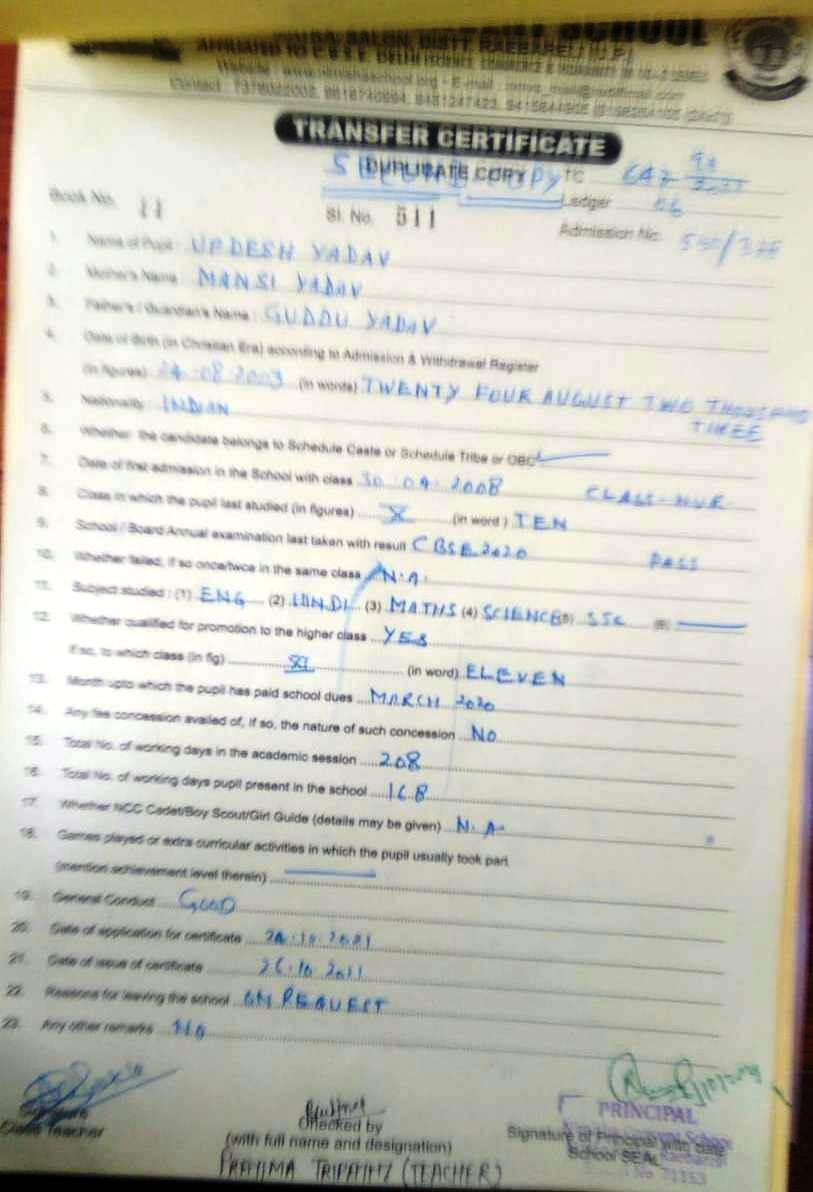 SCHOOL
SALON, DISTT. RAEBARELI (U.P.)
AFFILIATED TO C.B.S.E. DELHI
TRANSFER CERTIFICATE
DUPLICATE COPY TC 647
SECOND COPY
Ledger 06
Book No. 11 Sl. No. 511 Admission No.
1. Name of Pupil : UPDESH YADAV
2. Mother's Name : MANSI YADAV
3. Father's / Guardian's Name : GUDDU YADAV
4. Date of Birth (in Christian Era) according to Admission & Withdrawal Register
(in figures) 24-08-2003 (in words) TWENTY FOUR AUGUST TWO THOUSAND
THREE
5. Nationality : INDIAN
6. Whether the candidate belongs to Schedule Caste or Schedule Tribe or OBC
7. Date of first admission in the School with class 30.04.2008 CLASS-NUR
8. Class in which the pupil last studied (in figures) X (in word) TEN
9. School / Board Annual examination last taken with result CBSE 2020 PASS
10. Whether failed, if so once/twice in the same class N.A.
11. Subject studied : (1) ENG (2) HINDI (3) MATHS (4) SCIENCE (5) SSC (6)
12. Whether qualified for promotion to the higher class YES
If so, to which class (in fig) XI (in word) ELEVEN
13. Month upto which the pupil has paid school dues MARCH 2020
14. Any fee concession availed of, if so, the nature of such concession No
15. Total No. of working days in the academic session 208
16. Total No. of working days pupil present in the school 168
17. Whether NCC Cadet/Boy Scout/Girl Guide (details may be given) N.A
18. Games played or extra curricular activities in which the pupil usually took part
(mention achievement level therein)
19. General Conduct GOOD
20. Date of application for certificate
21. Date of issue of certificate
22. Reasons for leaving the school ON REQUEST
23. Any other remarks No
Signature
Class Teacher
Checked by
(with full name and designation)
PRATIMA TRIPATHI (TEACHER)
PRINCIPAL
Signature of Principal with date
School SEAL